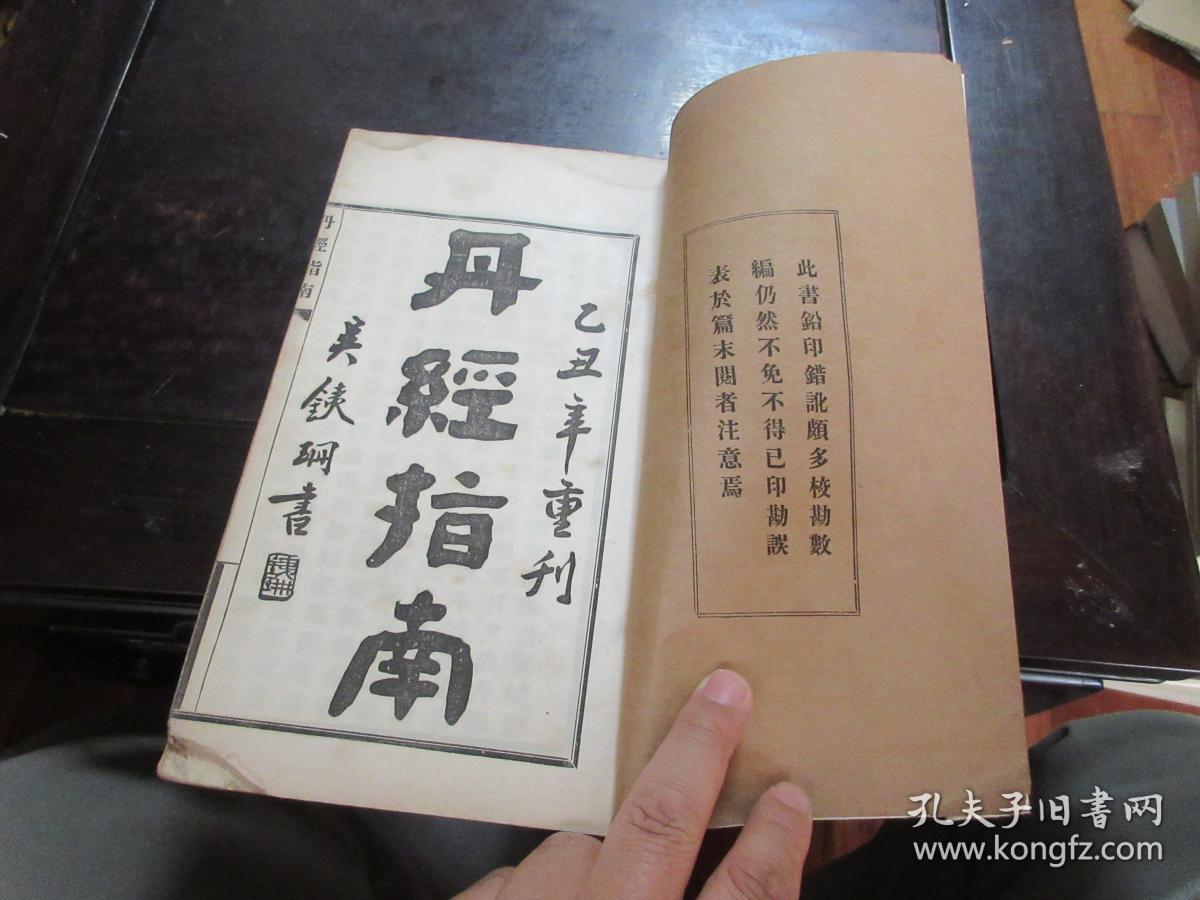 此書鉛印錯訛頗多校勘數
編仍然不免不得已印勘誤
表於篇末閱者注意焉
乙丑年重刊
丹經指南
吳鐵珊書
鐵珊
丹經指南
孔夫子旧書网
www.kongfz.com